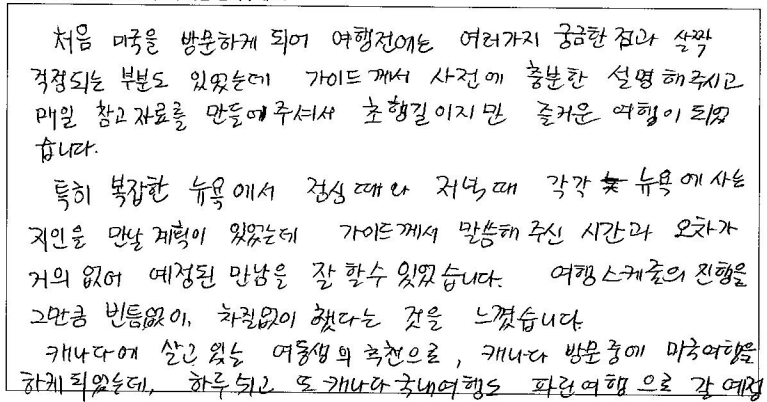 처음 미국을 방문하게 되어 여행전에는 여러가지 궁금한 점과 살짝
걱정되는 부분도 있었는데 가이드께서 사전에 충분한 설명해주시고
매일 참고자료를 만들어주셔서 초행길이지만 즐거운 여행이 되었
습니다.
특히 복잡한 뉴욕에서 점심때와 저녁때 각각 뉴욕에 사는
지인을 만날 계획이 있었는데 가이드께서 말씀해 주신 시간과 오차가
거의 없어 예정된 만남을 잘 할수 있었습니다. 여행스케줄의 진행을
그만큼 빈틈없이, 차질없이 했다는 것을 느꼈습니다.
캐나다에 살고 있는 여동생의 추천으로, 캐나다 방문중에 미국여행을
하게되었는데, 하루 쉬고 또 캐나다 국내여행도 파란여행으로 갈 예정